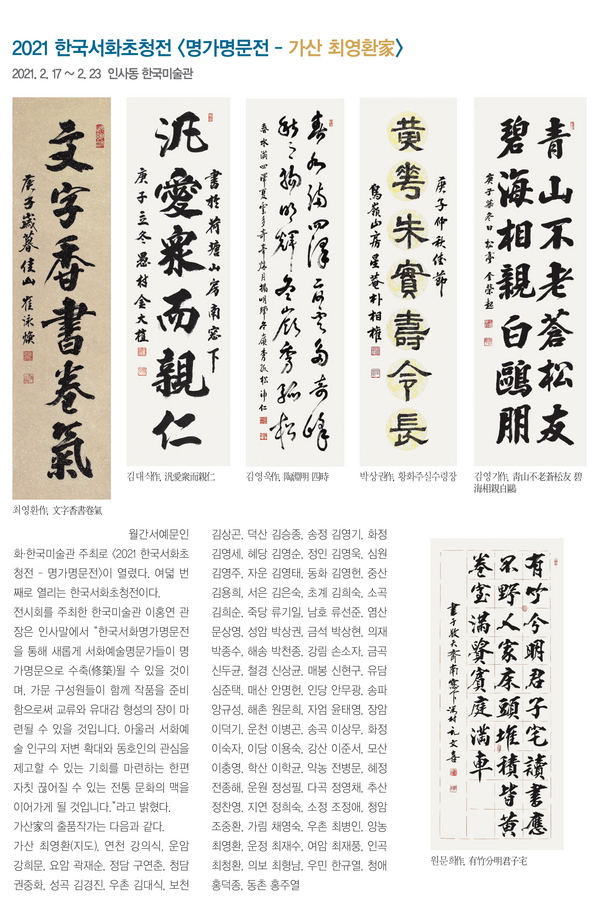 2021 한국서화초청전 〈명가명문전 - 가산 최영환家〉
2021. 2. 17 ~ 2. 23 인사동 한국미술관
文字香書卷氣
庚子歲暮佳山崔泳煥
최영환作, 文字香書卷氣
書於荷塘山房南窓下
汎愛衆而親仁
庚子立冬愚村金大植
김대식作, 汎愛衆而親仁
春水滿四澤夏雲多奇峰
秋月揚明輝冬嶺秀孤松
김영욱作, 陶淵明 四時
庚子仲秋佳節
黃花朱實壽令長
鳥嶺山房星菴朴相權
박상권作, 황화주실수령장
青山不老蒼松友
碧海相親白鷗朋
김영기作, 靑山不老蒼松友 碧
海相親白鷗
월간서예문인
화·한국미술관 주최로 〈2021 한국서화초
청전 - 명가명문전〉이 열렸다. 여덟 번
째로 열리는 한국서화초청전이다.
전시회를 주최한 한국미술관 이홍연 관
장은 인사말에서 "한국서화명가명문전
을 통해 새롭게 서화예술명문가들이 명
가명문으로 수축(修築)될 수 있을 것이
며, 가문 구성원들이 함께 작품을 준비
함으로써 교류와 유대감 형성의 장이 마
련될 수 있을 것입니다. 아울러 서화예
술 인구의 저변 확대와 동호인의 관심을
제고할 수 있는 기회를 마련하는 한편
자칫 끊어질 수 있는 전통 문화의 맥을
이어가게 될 것입니다."라고 밝혔다.
가산家의 출품작가는 다음과 같다.
가산 최영환(지도), 연천 강의식, 운암
강희문, 요암 곽재순, 정담 구연춘, 청담
권중화, 성곡 김경진, 우촌 김대식, 보천
김상곤, 덕산 김승종, 송정 김영기, 화정
김영세, 혜당 김영순, 정인 김영욱, 심원
김영주, 자운 김영태, 동화 김영헌, 중산
김용희, 서은 김은숙, 초계 김희숙, 소곡
김희순, 죽당 류기일, 남호 류선준, 염산
문상영, 성암 박상권, 금석 박상현, 의재
박종수, 해송 박천종, 강림 손소자, 금곡
신두균, 철경 신상균, 매봉 신현구, 유담
심준택, 매산 안명헌, 인당 안무광, 송파
양규성, 해촌 원문희, 자엄 윤태영, 장암
이덕기, 운천 이병곤, 송곡 이상무, 화정
이숙자, 이당 이용숙, 강산 이준서, 모산
이충영, 학산 이학균, 약농 전병문, 혜정
전종해, 운원 정성필, 다곡 정영채, 추산
정찬영, 지연 정희숙, 소정 조정애, 청암
조중환, 가림 채영숙, 우촌 최병인, 양농
최영환, 운정 최재수, 여암 최재풍, 인곡
최청환, 의보 최형남, 우민 한규열, 청애
홍덕종, 동촌 홍주열
有竹今明君子宅讀書應
不野人家床頭堆積皆黃
卷室滿賢賓庭滿車
원문희作, 有竹分明君子宅